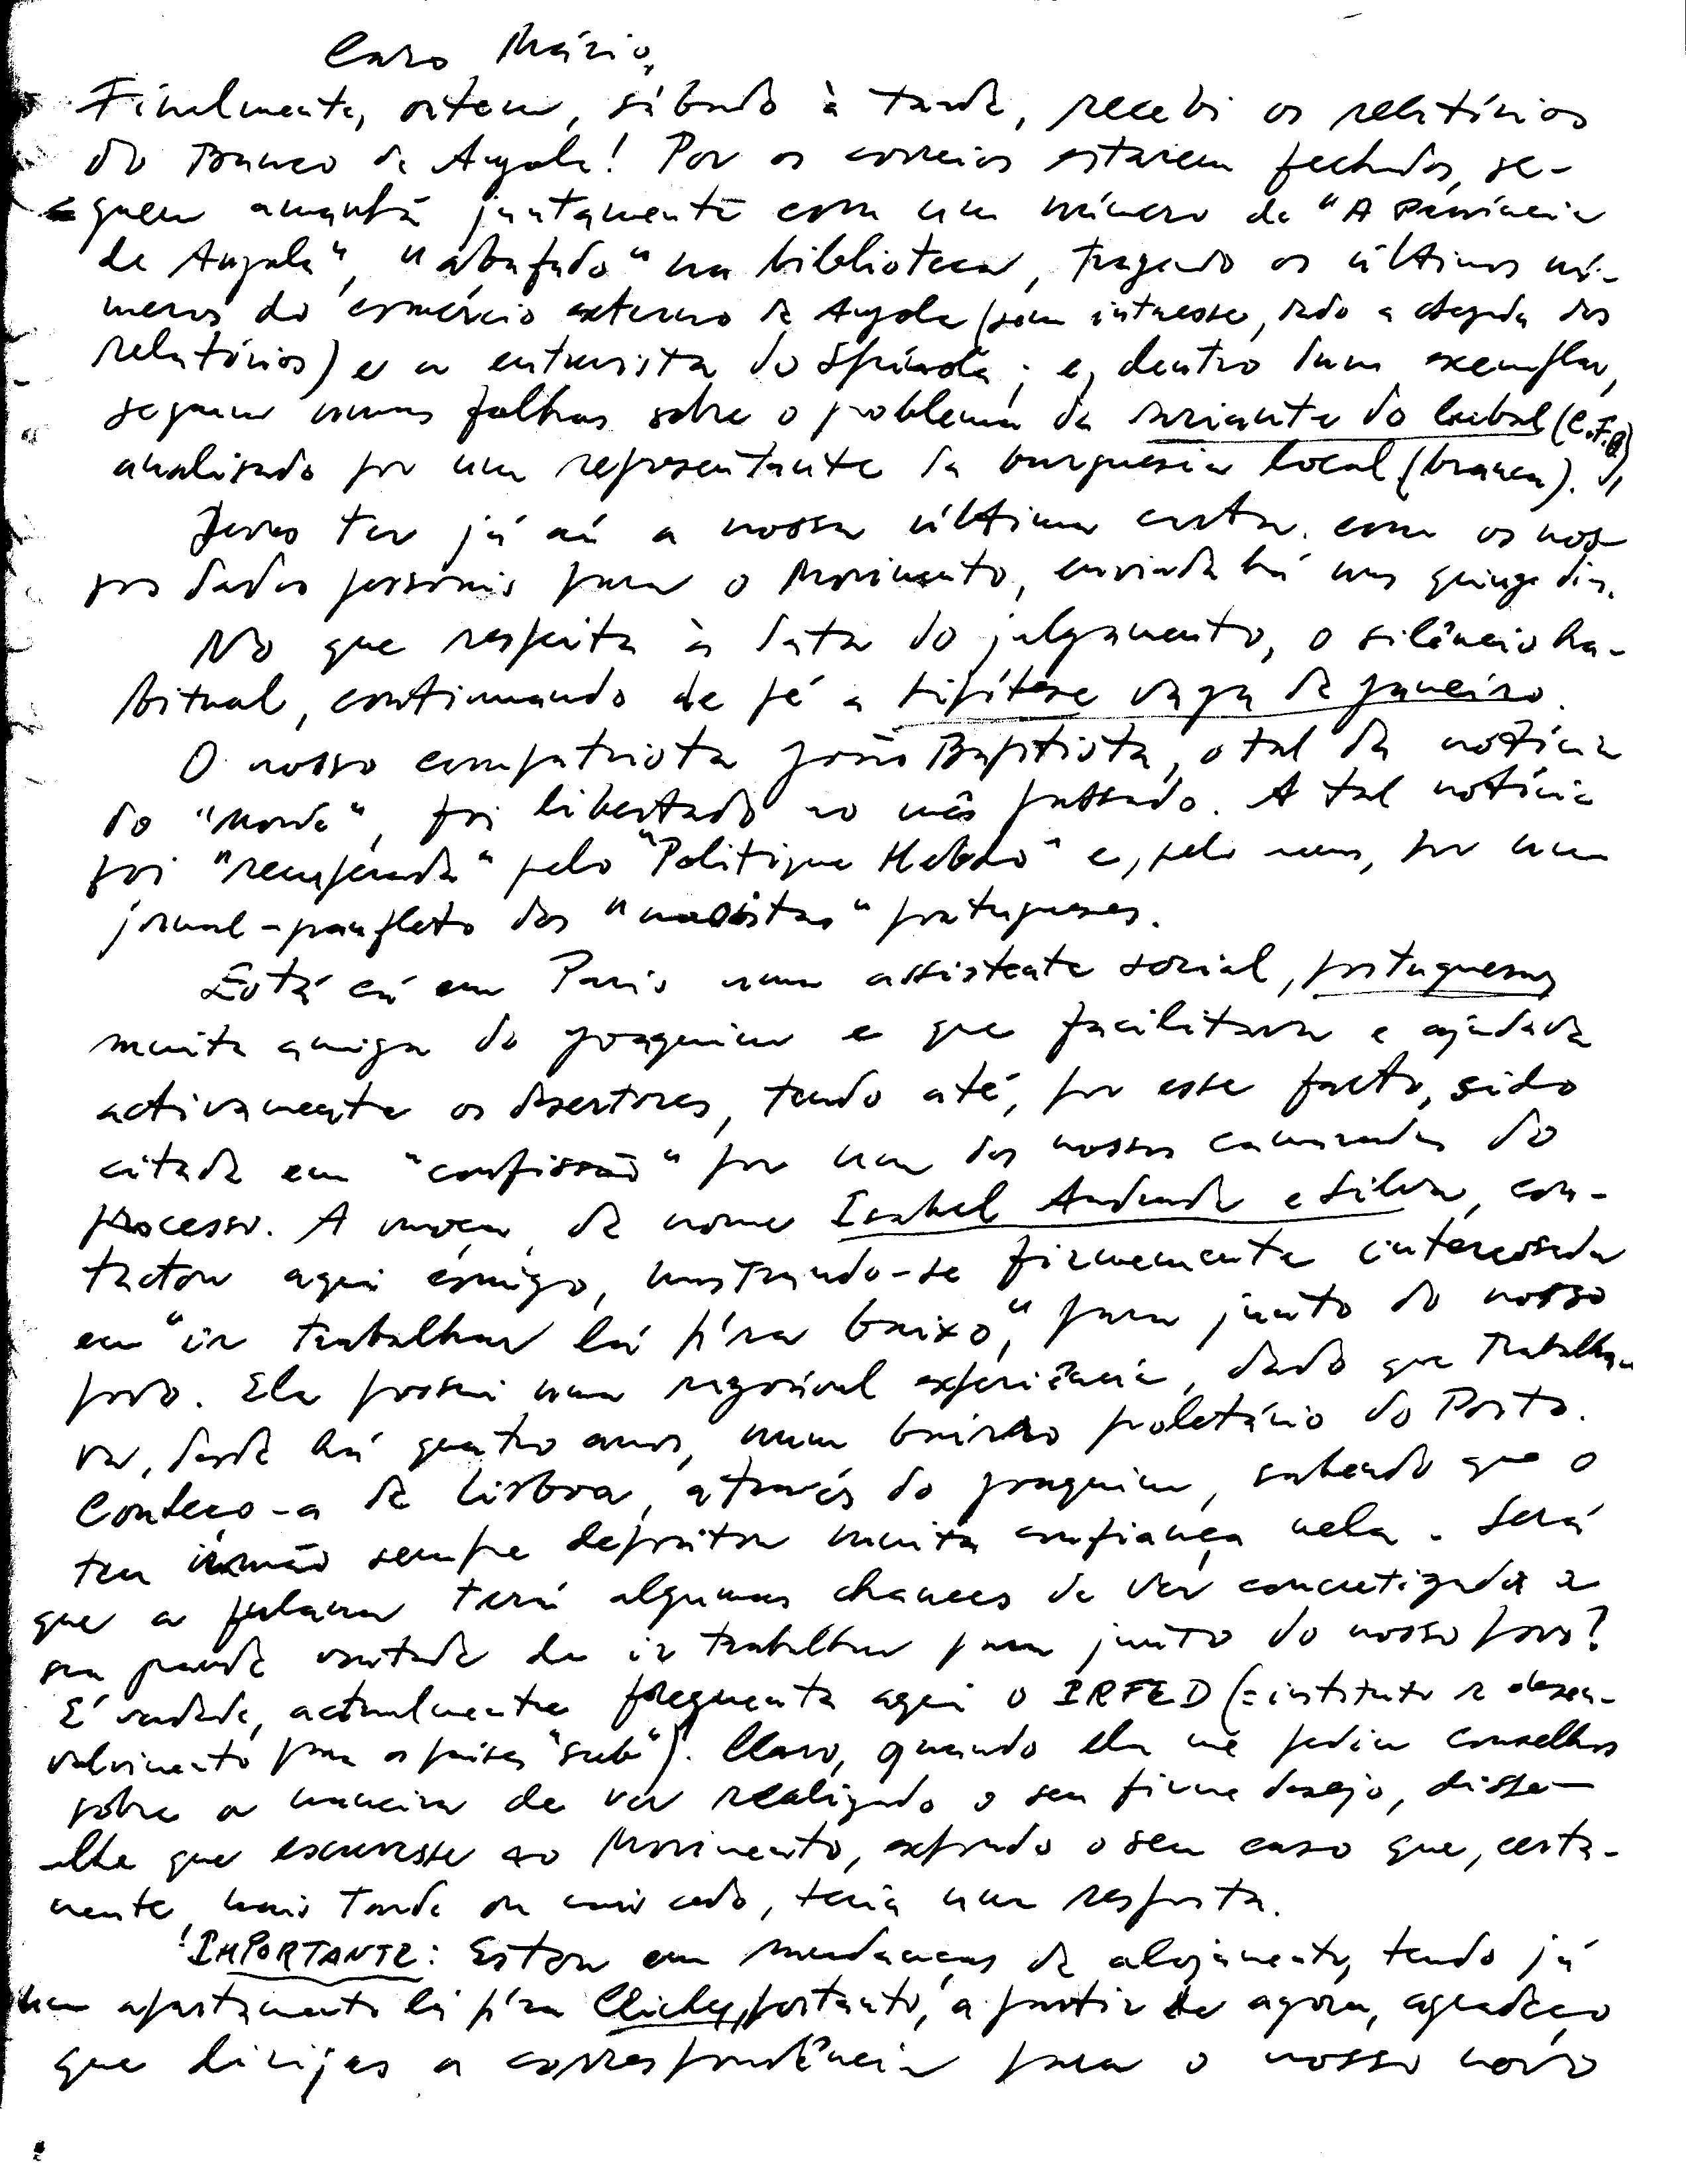 Caro Mário,
Finalmente, ontem, sábado à tarde, recebi os relatórios
do Banco de Angola! Por os correios estarem fechados, se-
guem amanhã juntamente com um número de "A Província
de Angola", "abafado" na biblioteca, trazendo os últimos nú-
meros do comércio externo de Angola (sem interesse, dado a chegada dos
relatórios) e a entrevista do Spínola; e, dentro dum exemplar,
seguem umas folhas sobre o problema da variante do Cubal (C.F.B)
analisado por um representante da burguesia local (branca).
Deves ter já aí a nossa última carta com os nos-
sos dados pessoais para o Movimento, enviada há uns quinze dias.
No que respeita à data do julgamento, o silêncio ha-
bitual, continuando de pé a hipótese vaga de Janeiro.
O nosso compatriota João Baptista, o tal da notícia
do "Monde", foi libertado no mês passado. A tal notícia
foi "recuperada" pelo "Politique Hebdo" e, pelo menos, por um
jornal-panfleto dos "maoistas" portugueses.
Está cá em Paris uma assistente social, portuguesa,
muito amiga do Joaquim e que facilitava e ajudava
activamente os desertores, tendo até, por esse facto, sido
citada em "confissão" por um dos nossos camaradas do
processo. A moça, de nome Isabel Andrade e Silva, con-
tactou aqui comigo, mostrando-se firmemente interessada
em "ir trabalhar lá p'ra baixo," para junto do nosso
povo. Ela possui uma razoável experiência, dado que trabalha-
va, desde há quatro anos, num bairro proletário do Porto.
Conheço-a de Lisboa, através do Joaquim, sabendo que o
teu irmão sempre depositou muita confiança nela. Será
que a fulana terá algumas chances de ver concretizada a
sua grande vontade de ir trabalhar para junto do nosso povo?
É verdade, actualmente frequenta aqui o IRFED (= instituto de desen-
volvimento para os países "sub"). Claro, quando ela me pediu conselhos
sobre a maneira de ver realizado o seu firme desejo, disse-
-lhe que escrevesse ao Movimento, expondo o seu caso que, certa-
mente, mais tarde ou mais cedo, teria uma resposta.
!IMPORTANTE: Estou em mudanças de alojamento, tendo já
um apartamento lá p'ra Clichy, portanto, a partir de agora, agradeço
que dirijas a correspondência para o nosso novo